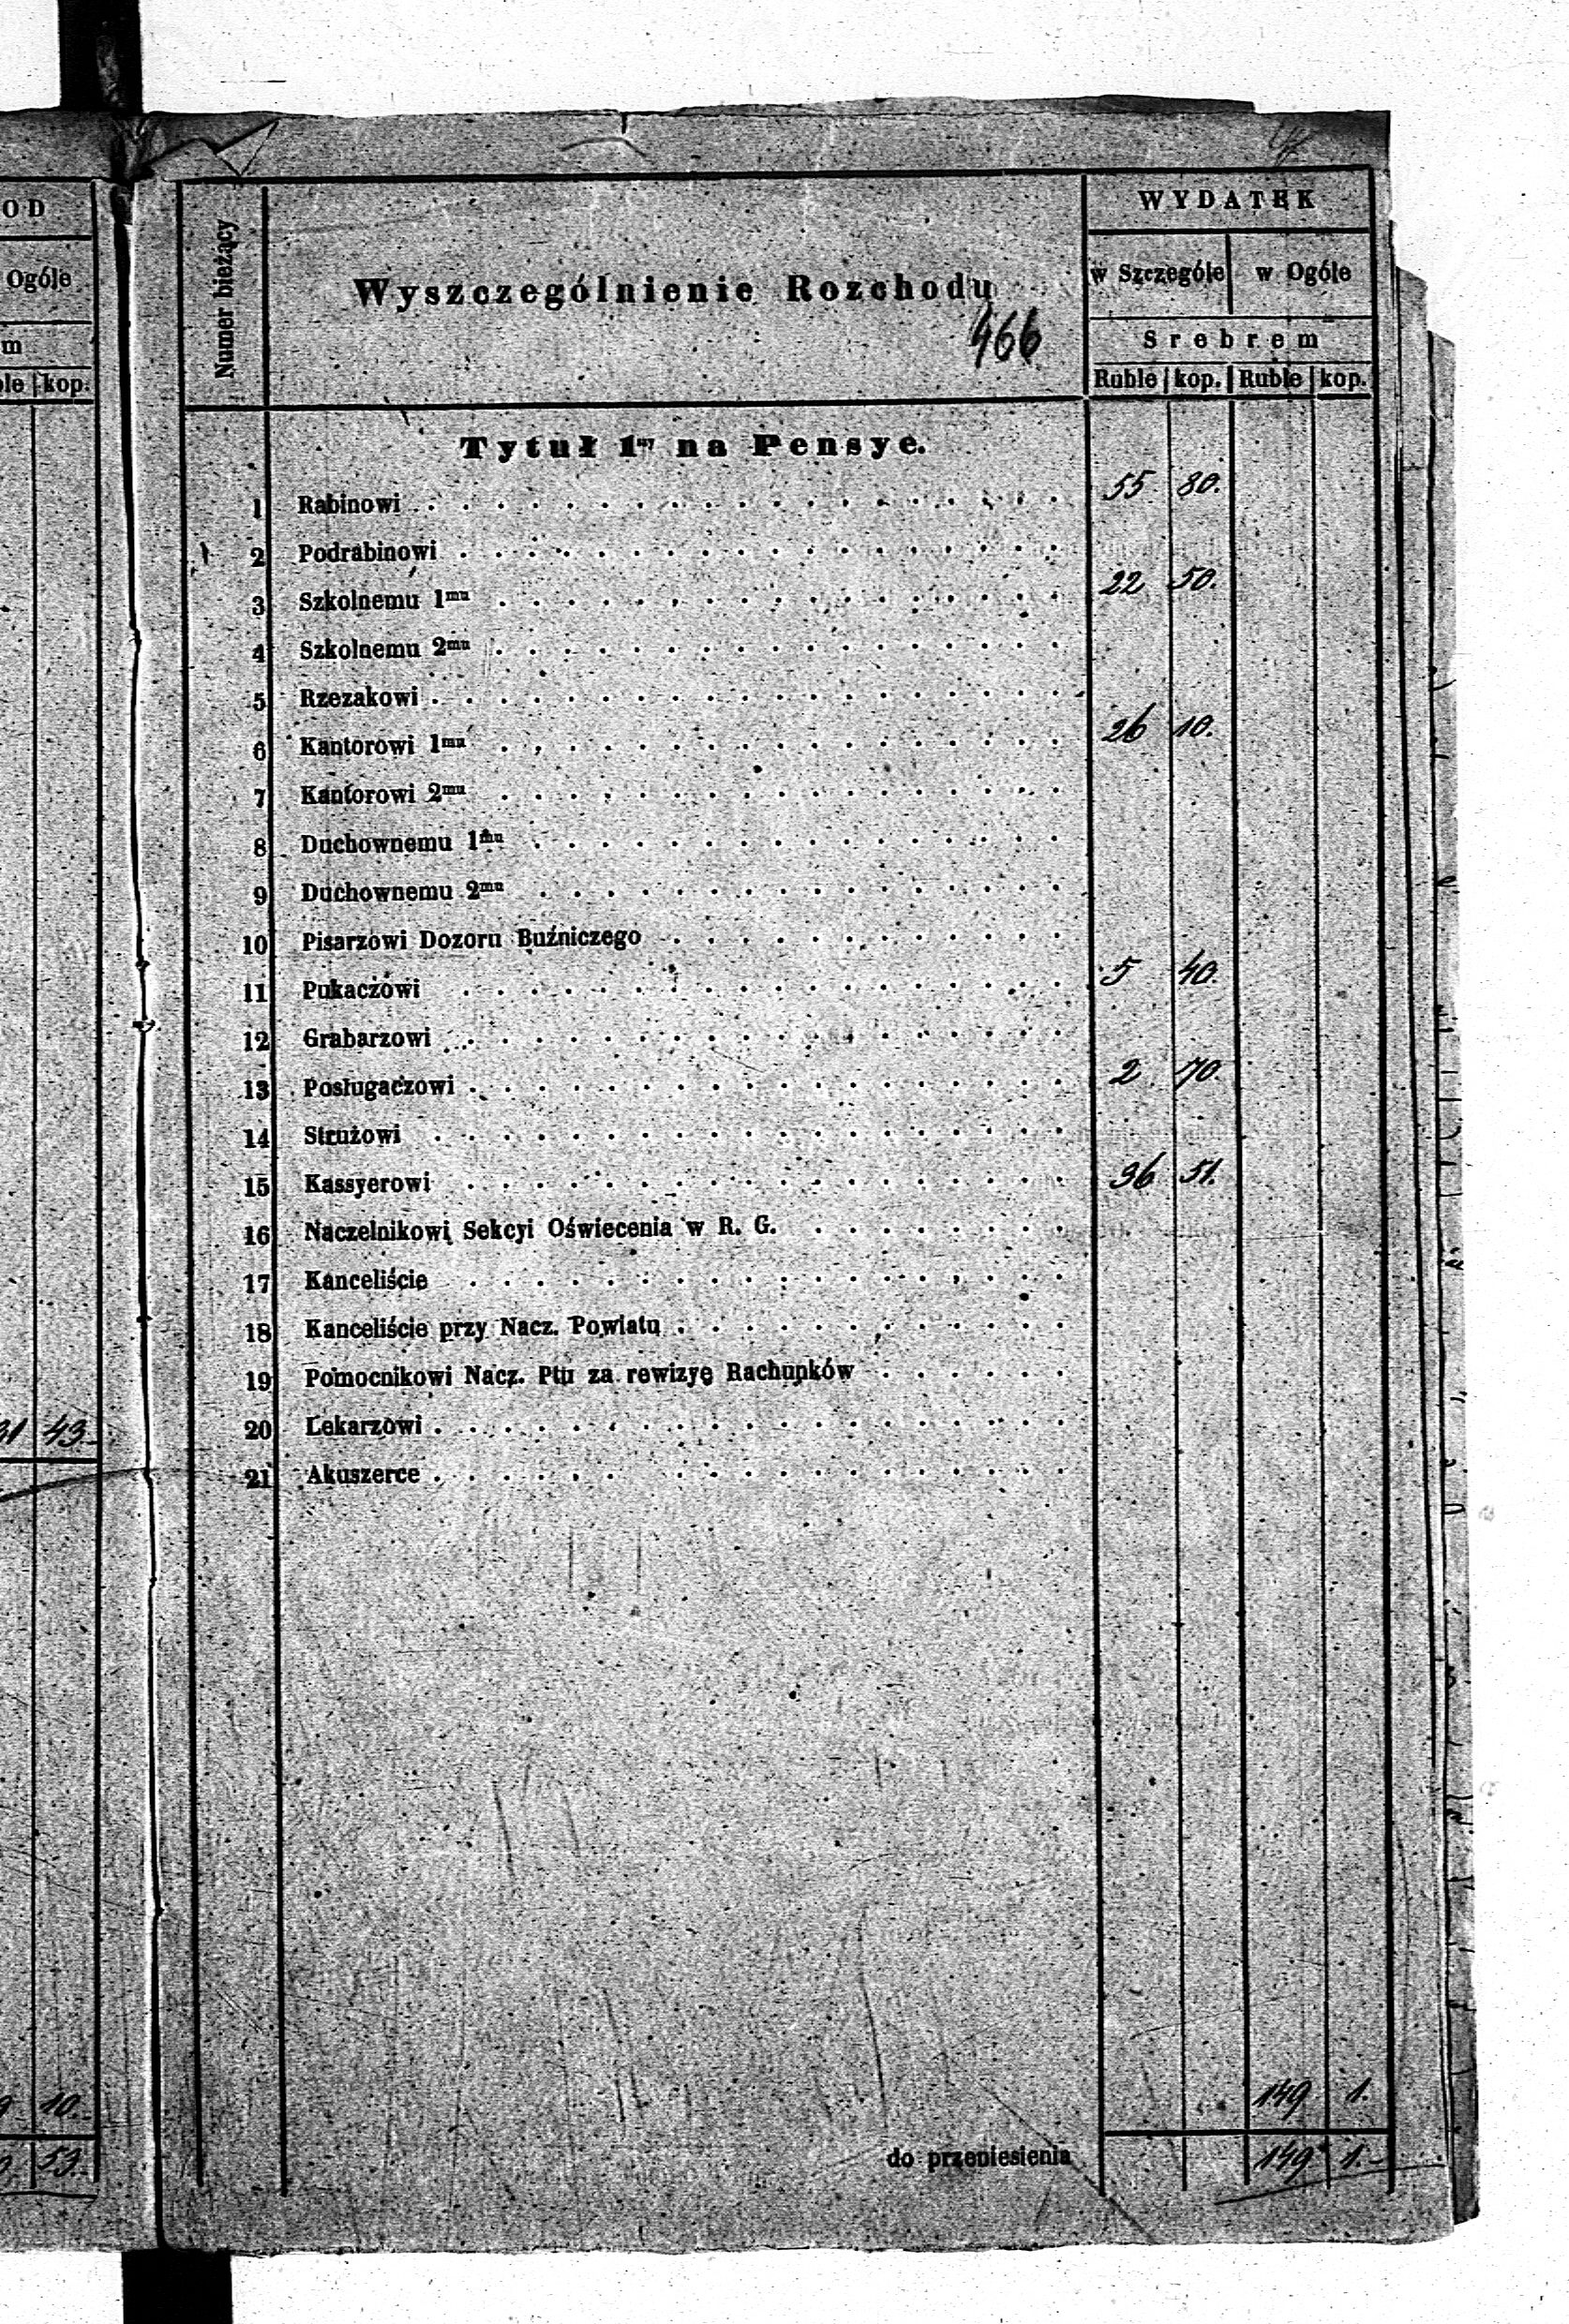 OD
Ogóle
m
kop.
43.
10.
53.
Numer bieżący
Wyszczególnienie Rozchodu
466
WYDATEK
w Szczególe w Ogóle
Srebrem
Ruble kop. Ruble kop.
Tytuł 1ny na Pensye.
1 Rabinowi 55 80.
2 Podrabinowi
3 Szkolnemu 1mu 22 50.
4 Szkolnemu 2mu
5 Rzezakowi
6 Kantorowi 1mu 26 10.
7 Kantorowi 2mu
8 Duchownemu 1mu
9 Duchownemu 2mu
10 Pisarzowi Dozoru Buźniczego
11 Pukaczowi 5 40.
12 Grabarzowi
13 Posługaczowi 2 70.
14 Strużowi
15 Kassyerowi 36 51.
16 Naczelnikowi Sekcyi Oświecenia w R. G.
17 Kanceliście
18 Kanceliście przy Nacz. Powiatu
19 Pomocnikowi Nacz. Ptu za rewizyę Rachunków
20 Lekarzowi
21 Akuszerce
149 1.
do przeniesienia 149 1.-